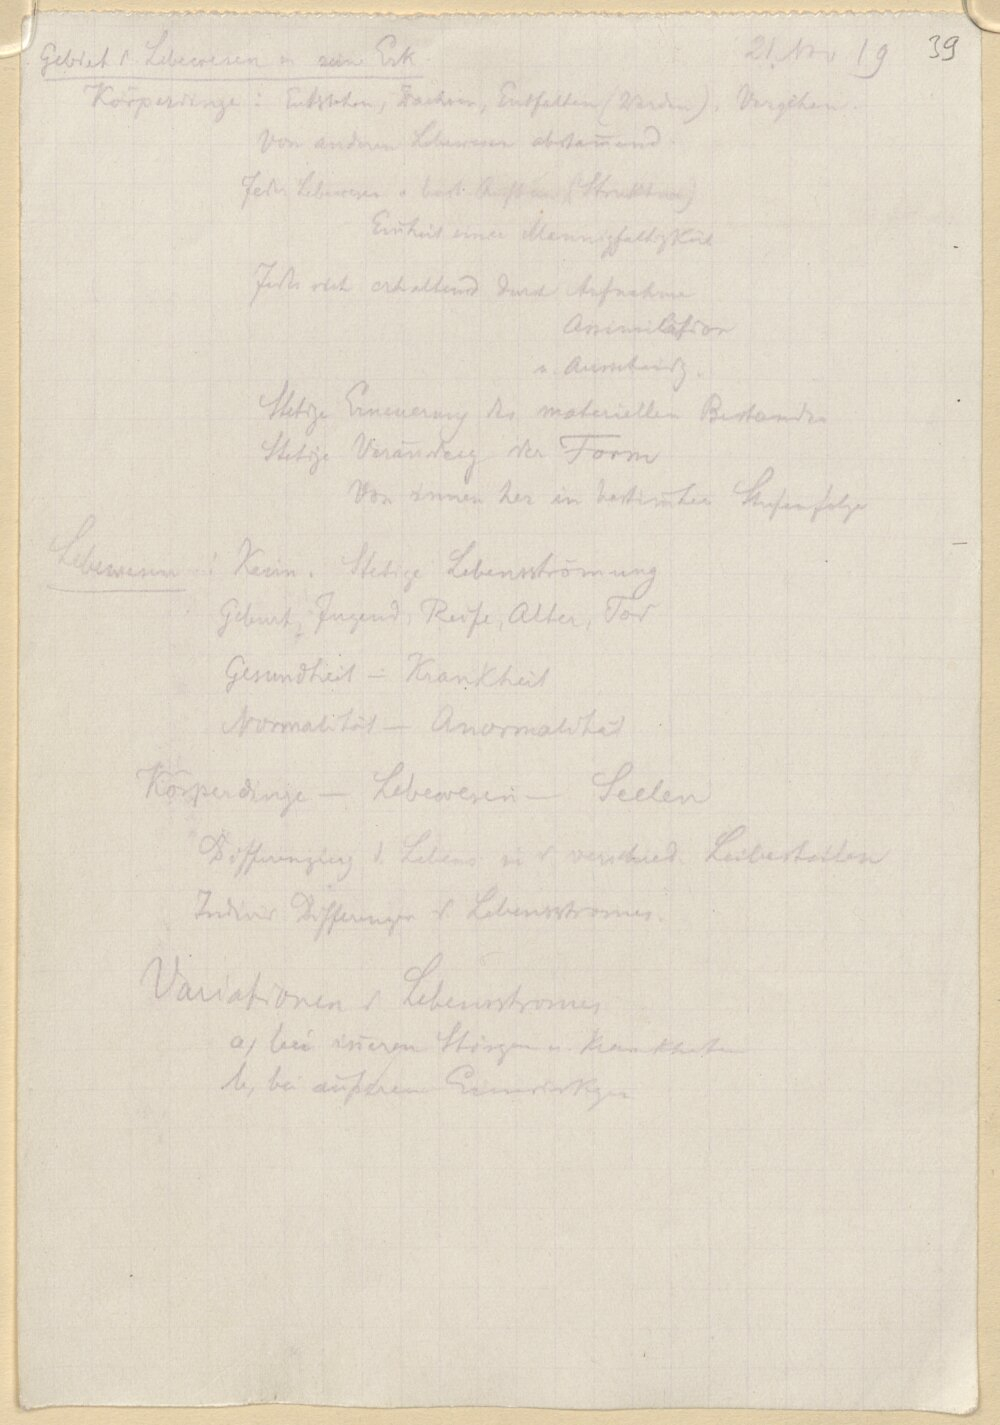 Gebiet d Lebewesen u sein Erk 21. Nov 19 39
Körperdinge : Entstehen, Wachsen, Entfalten (Werden), Vergehen.
Von anderen Lebewesen abstam̄end.
Jedes Lebewesen e best. Aufbau (Struktur)
Einheit einer Mannigfaltigkeit
Jedes sich erhaltend durch Aufnahme
Assimilation
u. Ausscheidg.
Stetige Erneuerung des materiellen Bestandes
Stetige Veränderg der Form
Von innen her in bestim̄ter Stufenfolge
Lebewesen : Keim. Stetige Lebensströmung
Geburt, Jugend, Reife, Alter, Tod
Gesundheit – Krankheit
Normalität – Anormalität
Körperdinge – Lebewesen – Seelen
Differenzierg d. Lebens in d verschied. Leibesteilen
Individ Differenzen d Lebensstromes.
Variationen d Lebensstromes
a, bei in̄eren Störgen u. Krankheiten
b, bei äußeren Einwirkgen